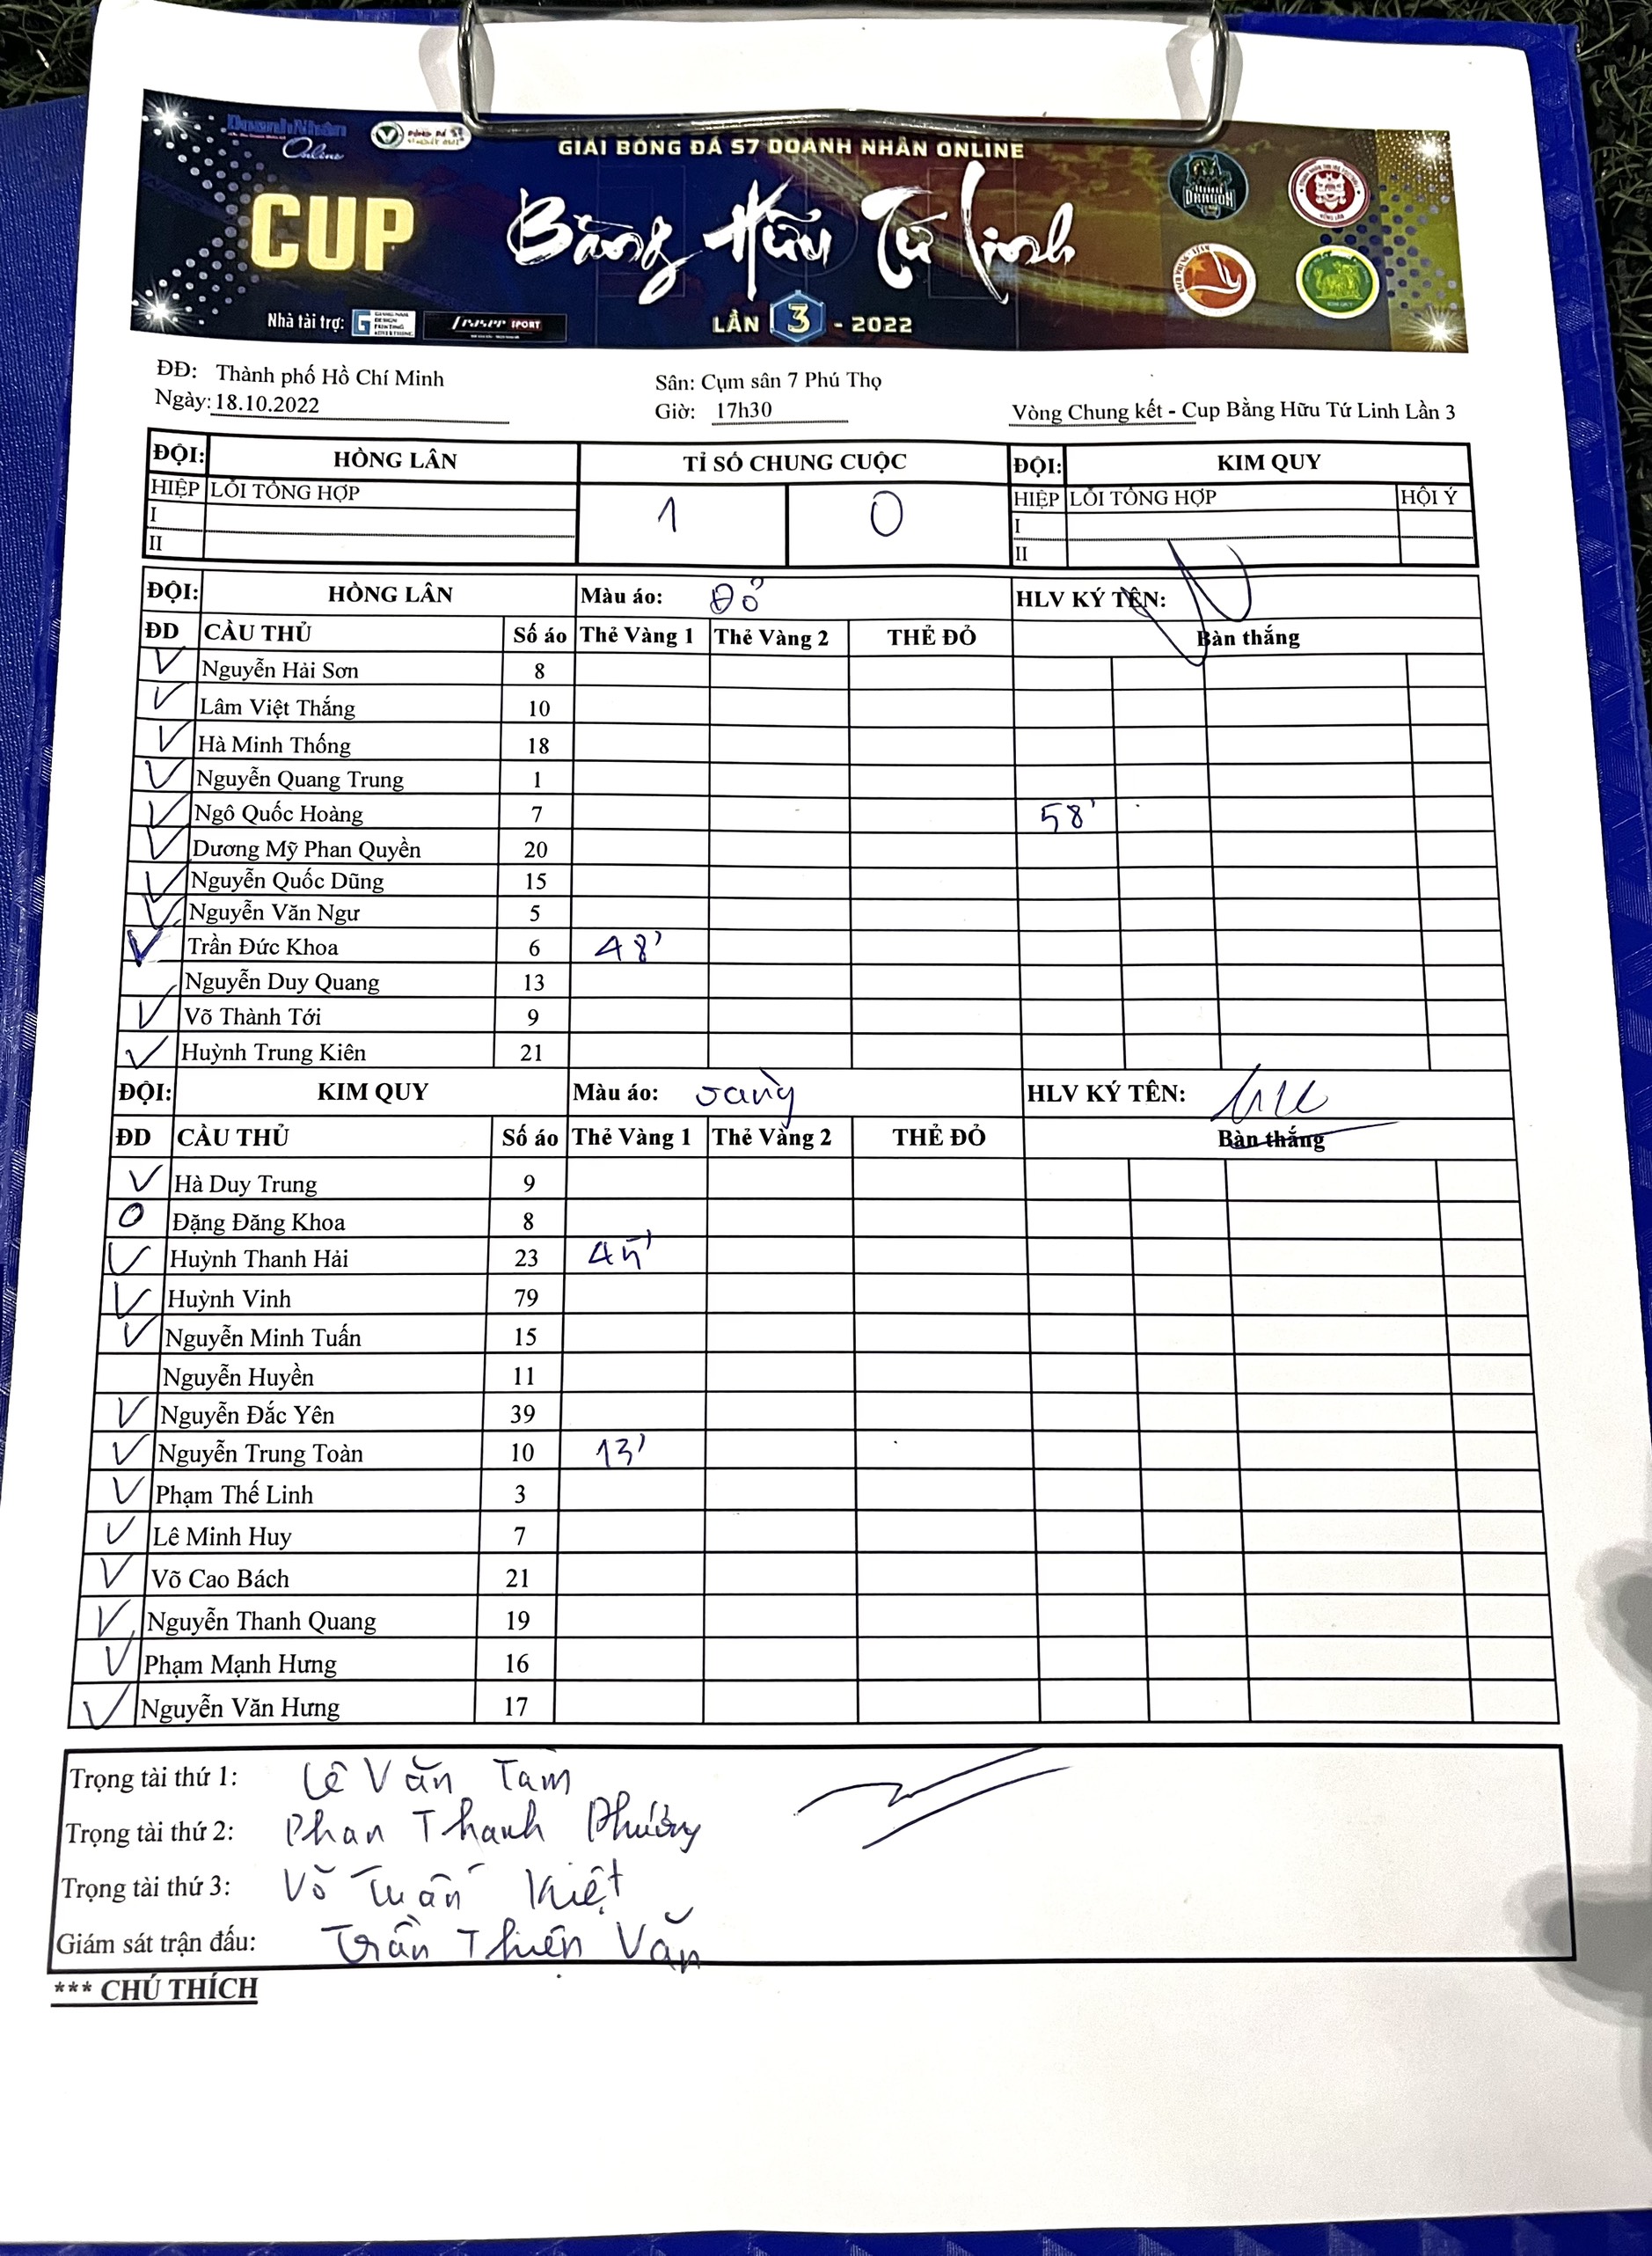 DoanhNhân
Online
GIẢI BÓNG ĐÁ S7 DOANH NHÂN ONLINE
CUP Bằng Hữu Tứ Linh
DRAGON
Nhà tài trợ: SPORT
LẦN 3 - 2022
ĐĐ: Thành phố Hồ Chí Minh Sân: Cụm sân 7 Phú Thọ
Ngày: 18.10.2022 Giờ: 17h30 Vòng Chung kết - Cup Bằng Hữu Tứ Linh Lần 3
ĐỘI: HỒNG LÂN TỈ SỐ CHUNG CUỘC ĐỘI: KIM QUY
HIỆP LỖI TỔNG HỢP 1 0 HIỆP LỖI TỔNG HỢP HỘI Ý
I I
II II
ĐỘI: HỒNG LÂN Màu áo: Đỏ HLV KÝ TÊN:
ĐD CẦU THỦ Số áo Thẻ Vàng 1 Thẻ Vàng 2 THẺ ĐỎ Bàn thắng
Nguyễn Hải Sơn 8
Lâm Việt Thắng 10
Hà Minh Thống 18
Nguyễn Quang Trung 1
Ngô Quốc Hoàng 7 58'
Dương Mỹ Phan Quyền 20
Nguyễn Quốc Dũng 15
Nguyễn Văn Ngư 5
Trần Đức Khoa 6 48'
Nguyễn Duy Quang 13
Võ Thành Tới 9
Huỳnh Trung Kiên 21
ĐỘI: KIM QUY Màu áo: HLV KÝ TÊN:
ĐD CẦU THỦ Số áo Thẻ Vàng 1 Thẻ Vàng 2 THẺ ĐỎ Bàn thắng
Hà Duy Trung 9
Đặng Đăng Khoa 8
Huỳnh Thanh Hải 23 45'
Huỳnh Vinh 79
Nguyễn Minh Tuấn 15
Nguyễn Huyền 11
Nguyễn Đắc Yên 39
Nguyễn Trung Toàn 10 13'
Phạm Thế Linh 3
Lê Minh Huy 7
Võ Cao Bách 21
Nguyễn Thanh Quang 19
Phạm Mạnh Hưng 16
Nguyễn Văn Hưng 17
Trọng tài thứ 1: Lê Văn
Trọng tài thứ 2: Phan Thanh
Trọng tài thứ 3: Võ Tuấn Kiệt
Giám sát trận đấu: Trần Thiện Văn
*** CHÚ THÍCH